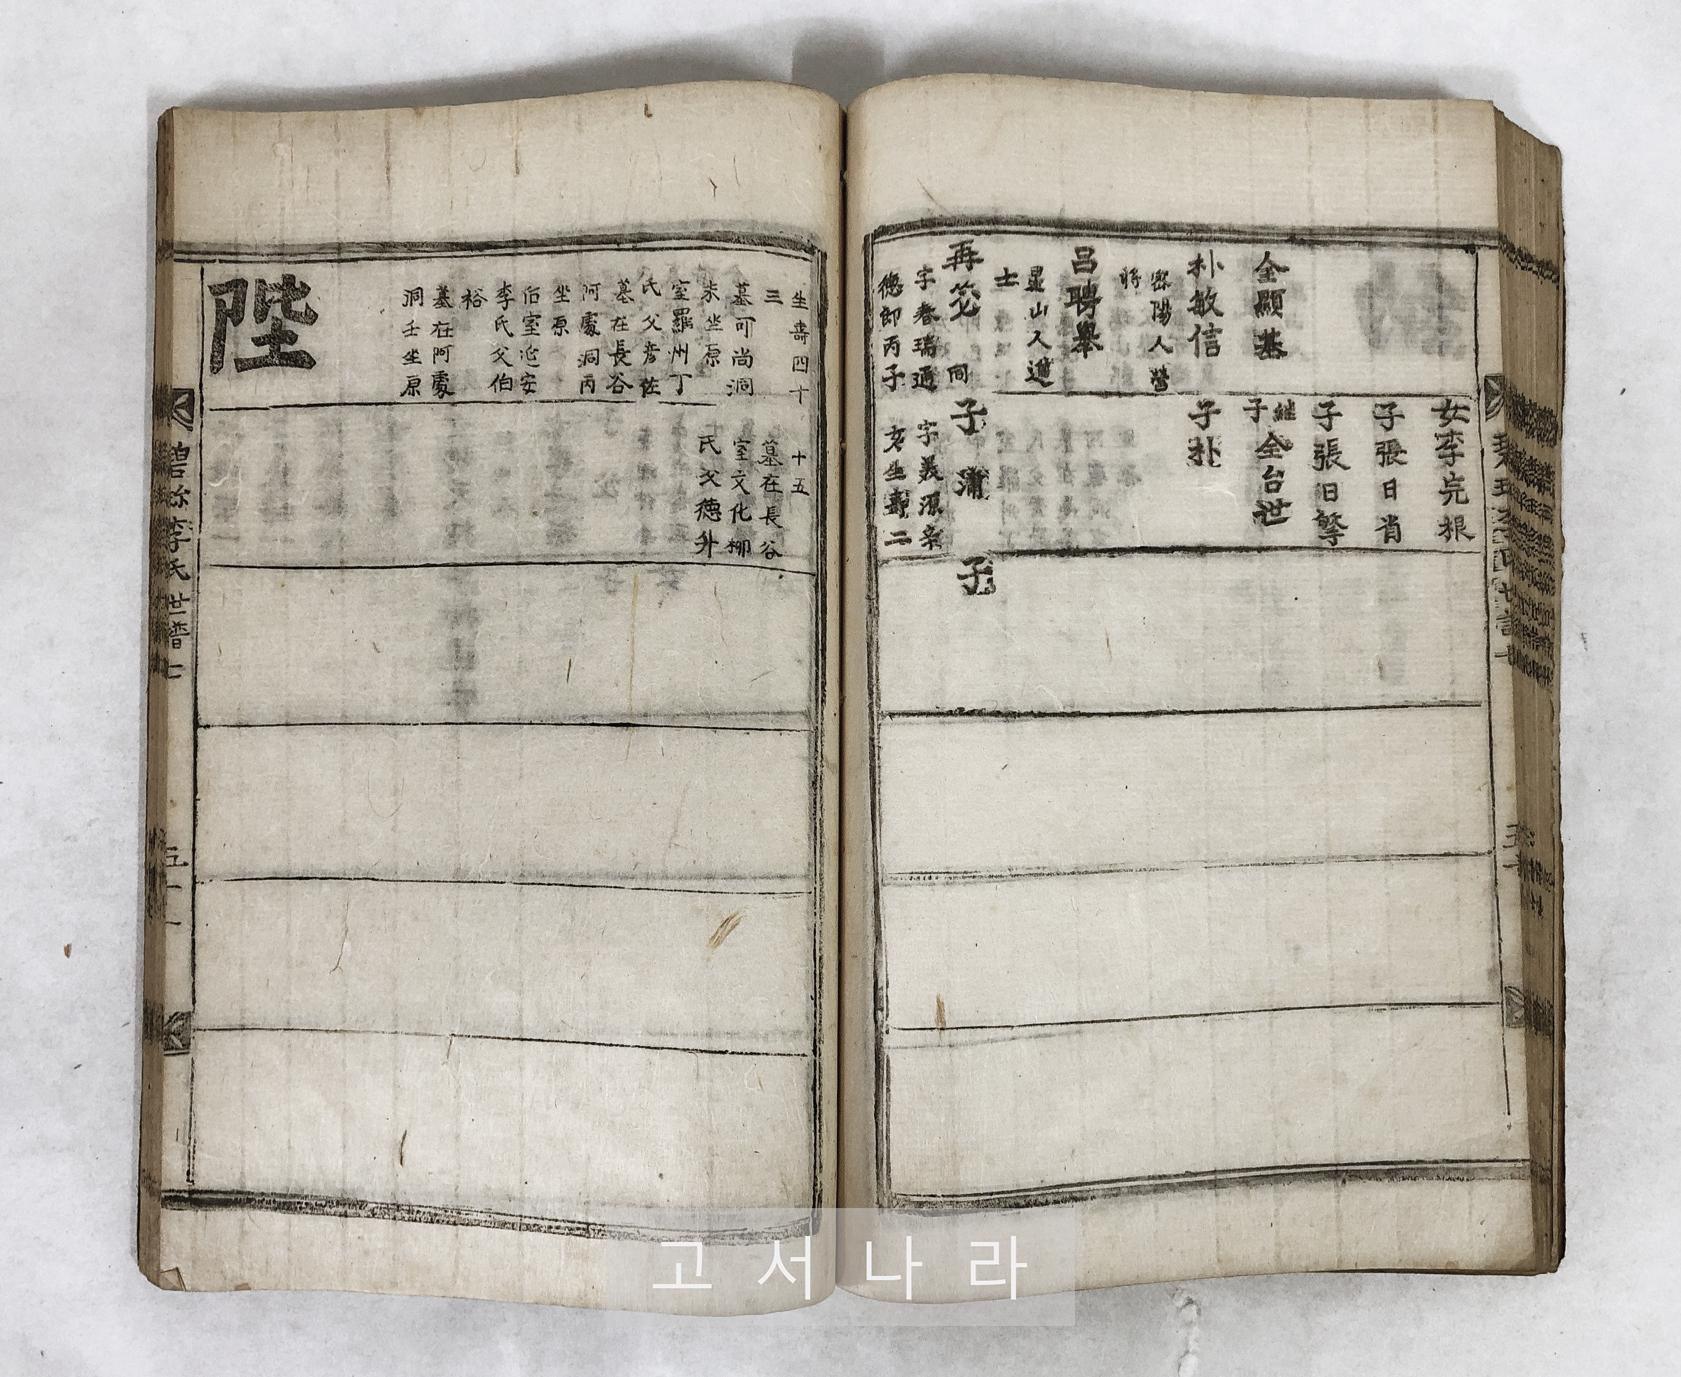 全顯基
朴敏信
密陽人營
將
呂聘舉
星山人進
士
再茓 同
字春瑞通
德郎丙子
女李完根
子張日省
子張日擎
繼子全台世
子朴
子 蒲
字義源辛
亥生壽二
子
生壽四十
三
墓可尚洞
未坐原
室羅州丁
氏父彦佐
墓在長谷
阿處洞丙
坐原
后室延安
李氏父伯
裕
墓在阿處
洞壬坐原
陛
十五
墓在長谷
室文化柳
氏父德升
碧珍李氏世譜七
五十一
고서나라